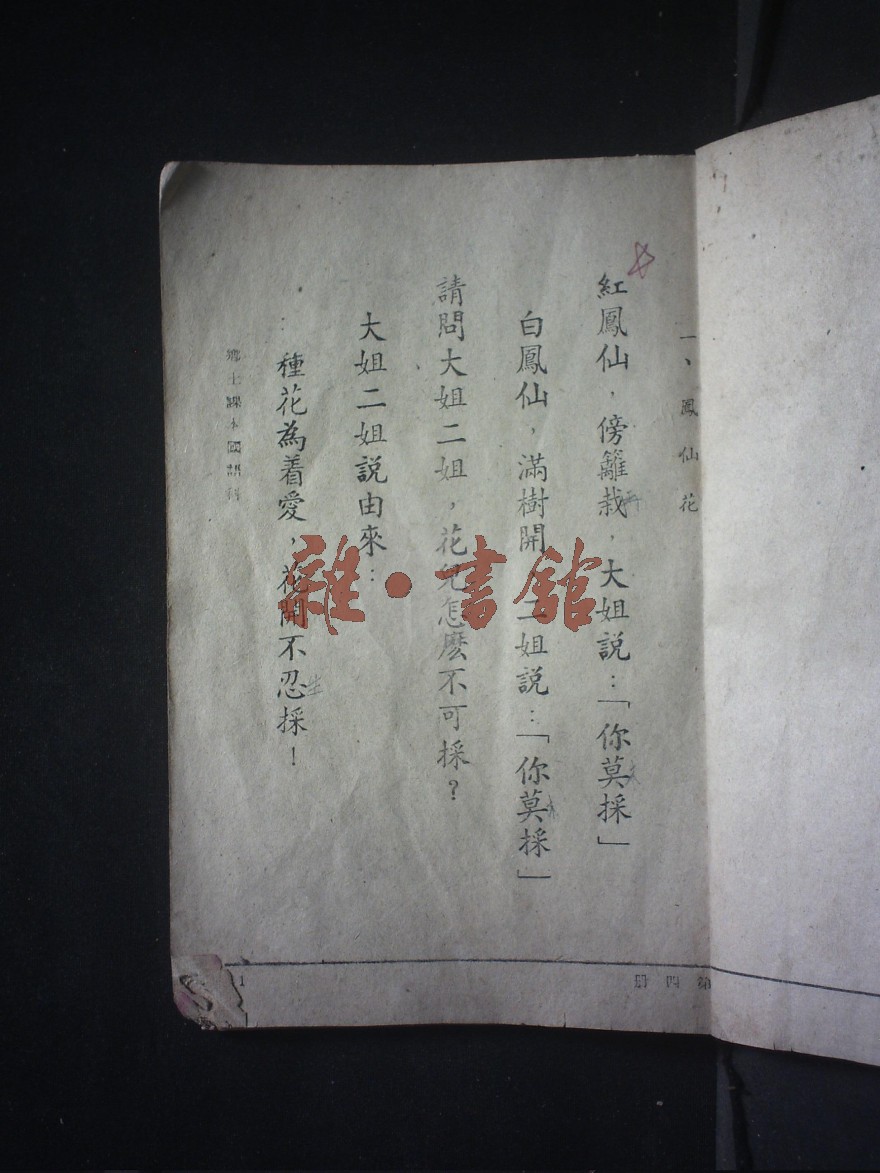 一、鳳仙花
紅鳳仙，傍籬栽，大姐説：「你莫採」
白鳳仙，滿樹開，二姐説：「你莫採」
請問大姐二姐，花兒怎麽不可採？
大姐二姐説由來：
種花為着愛，花開不忍採！
鄉土課本國語科
第四册
1
雜·書館